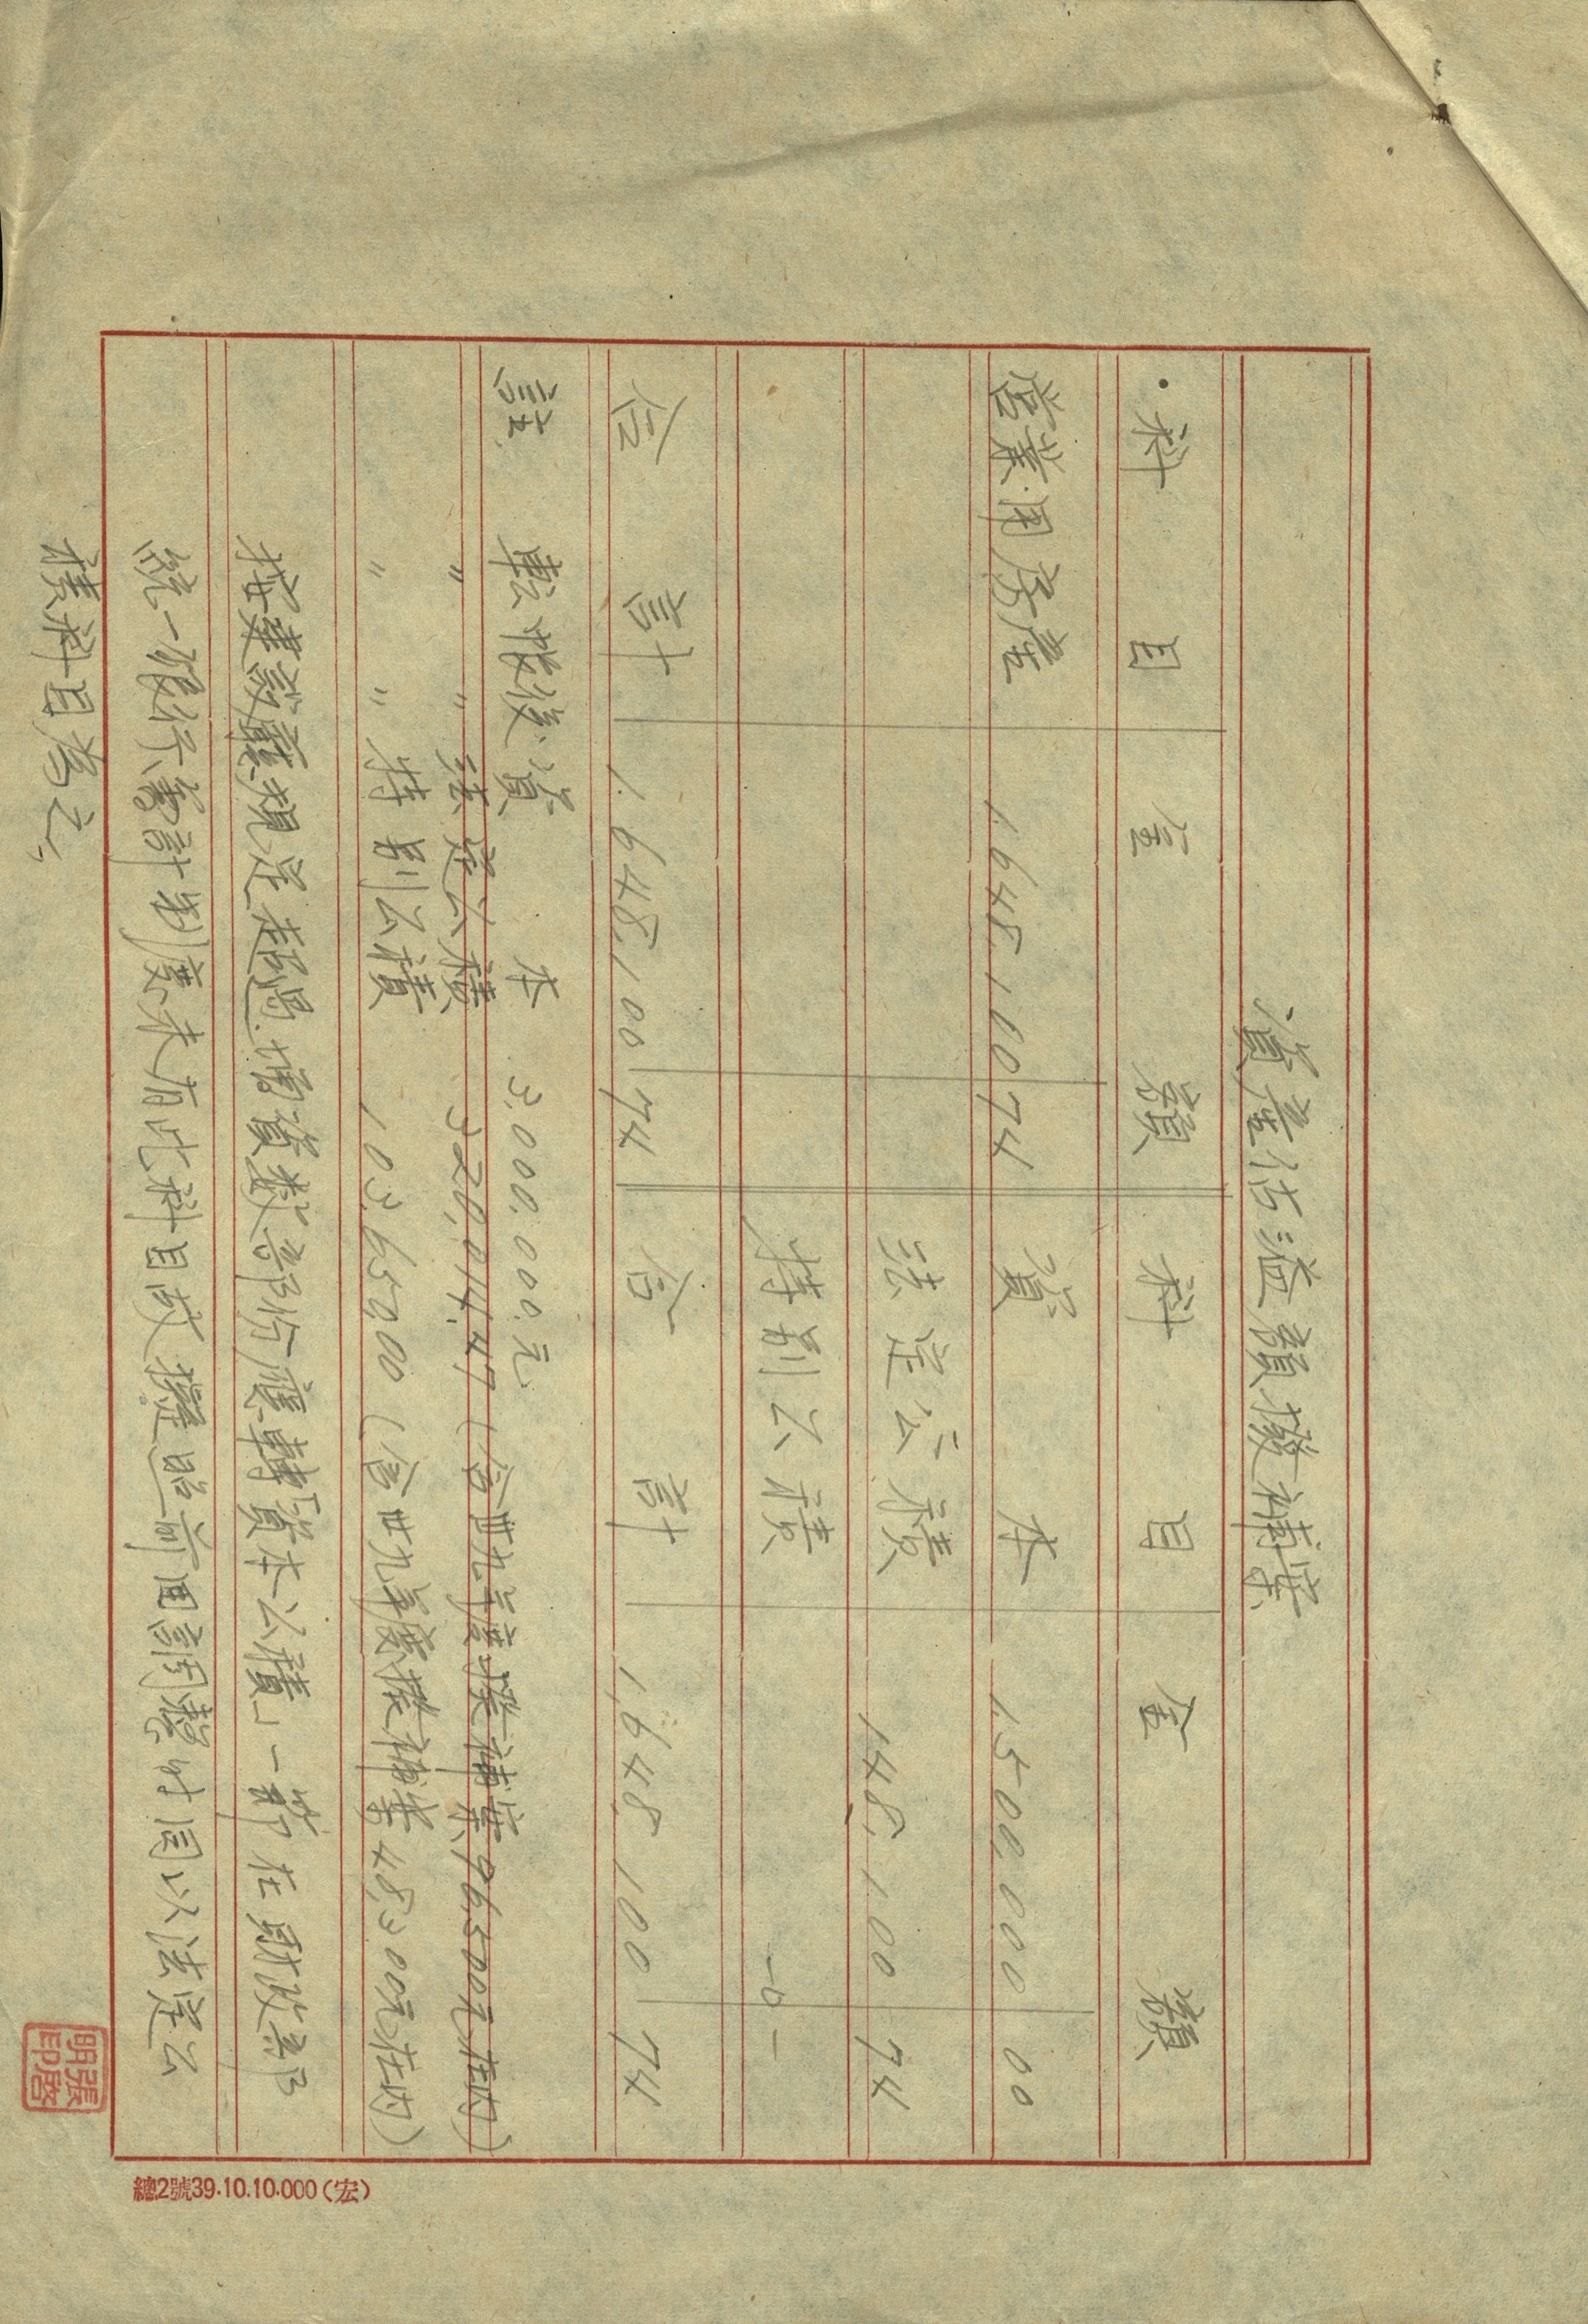 資產估溢額撥補案
科目 金額 科目 金額
營業用房產 1.648.100 74 資本 1.500.000 00
法定公積 148.100 74
特別公積 —0—
合計 1.648.100 74 合計 1.648.100 74
註 転帳後資本 3.000.000.元
〃 〃 法定公積 320.014.47 (含卅九年度撥補案96.500元在內)
〃 〃 特別公積 103.650.00 (含卅九年度撥補案48.300元在內)
按建設廳規定超過增資數部份應轉「資本公積」一節在財政部
統一銀行會計制度未有此科目故擬照前面調整时同以法定公
積科目為之、
總2號39.10.10.000(宏)
張啓明印